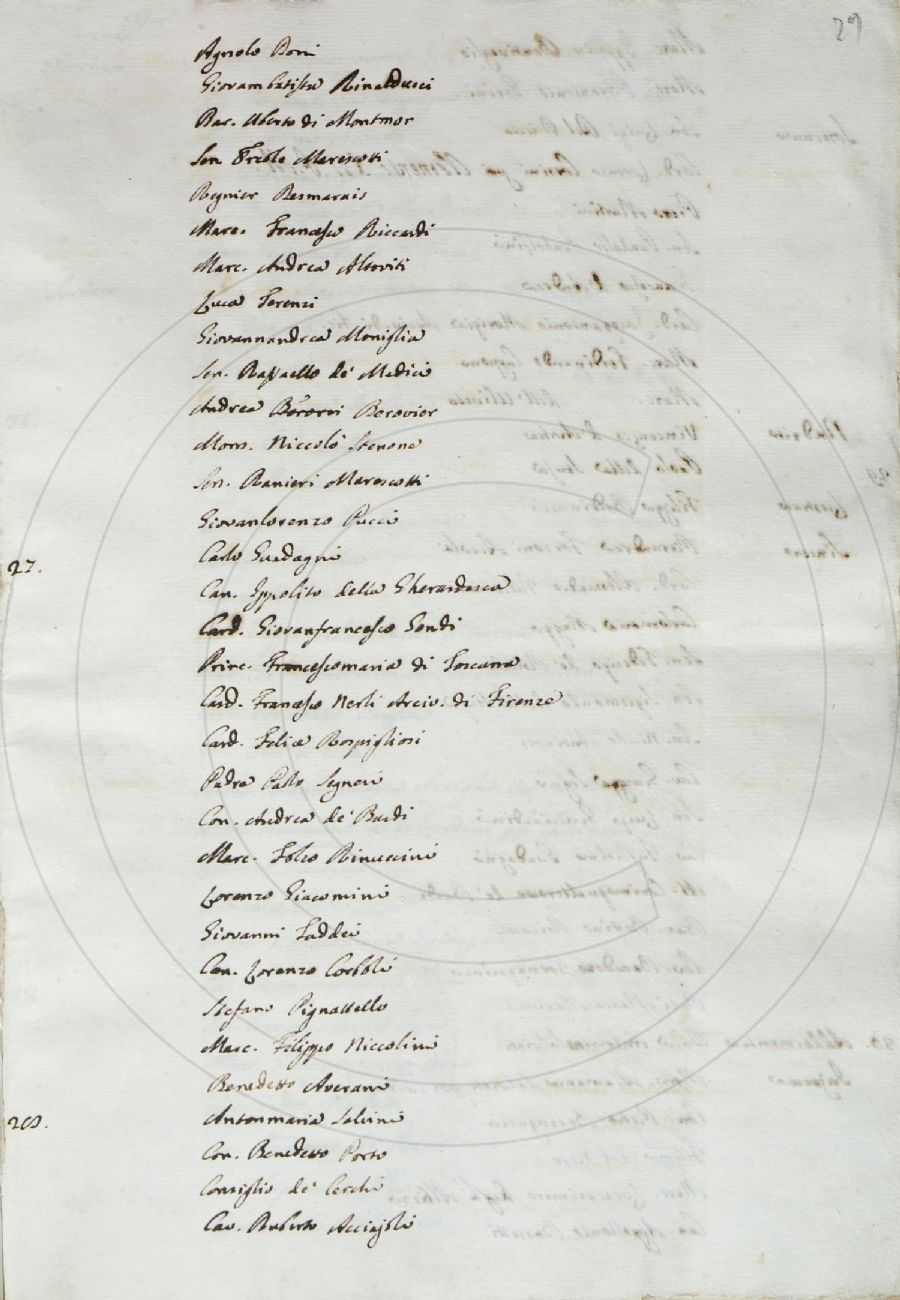 29
Agnolo Boni
Giovambatista Rinalducci
Bar. Alberto di Montmor
Sen. Ercole Marescotti
Regnier Desmarais
Marc. Francesco Riccardi
Marc. Andrea Altoviti
Luca Terenzi
Giovannandrea Moniglia
Sen. Raffaello de' Medici
Andrea Berovier
Mons. Niccolò Stenone
Sen. Ranieri Marescotti
Giovanlorenzo Pucci
27. Carlo Guadagni
Can. Ippolito della Gherardesca
Card. Giovanfrancesco Gondi
Princ. Francescomaria di Toscana
Card. Francesco Nerli Arciv. di Firenze
Card. Felice Rospigliosi
Padre Pallo Segneri
Con. Andrea de' Bardi
Marc. Folco Rinuccini
Lorenzo Giacomini
Giovanni Taddei
Can. Lorenzo Corboli
Stefano Pignattello
Marc. Filippo Niccolini
Benedetto Averani
28. Antonmaria Salvini
Con. Benedetto Porto
Consiglio de' Cerchi
Cav. Ruberto Acciajoli